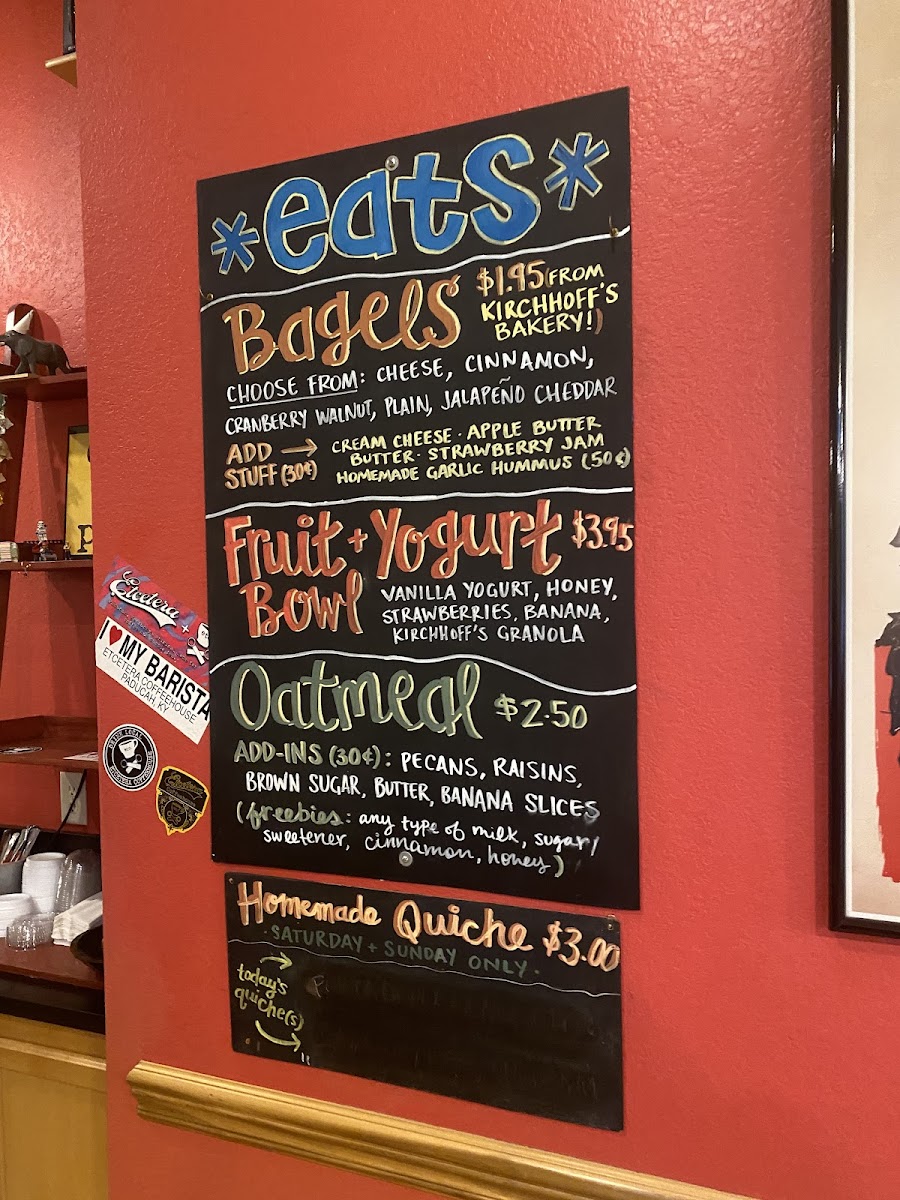 *eats*
Bagels $1.95 (FROM
KIRCHHOFF'S
BAKERY!)
CHOOSE FROM: CHEESE, CINNAMON,
CRANBERRY WALNUT, PLAIN, JALAPEÑO CHEDDAR
ADD → CREAM CHEESE · APPLE BUTTER
STUFF (30¢) BUTTER · STRAWBERRY JAM
HOMEMADE GARLIC HUMMUS (50¢)
Fruit + Yogurt $3.95
Bowl VANILLA YOGURT, HONEY,
STRAWBERRIES, BANANA,
KIRCHHOFF'S GRANOLA
Oatmeal $2.50
ADD-INS (30¢): PECANS, RAISINS,
BROWN SUGAR, BUTTER, BANANA SLICES
(freebies: any type of milk, sugar/
sweetener, cinnamon, honey)
Homemade Quiche $3.00
·SATURDAY + SUNDAY ONLY·
today's
quiche(s)
Etcetera
I ♥ MY BARISTA
ETCETERA COFFEEHOUSE
PADUCAH, KY